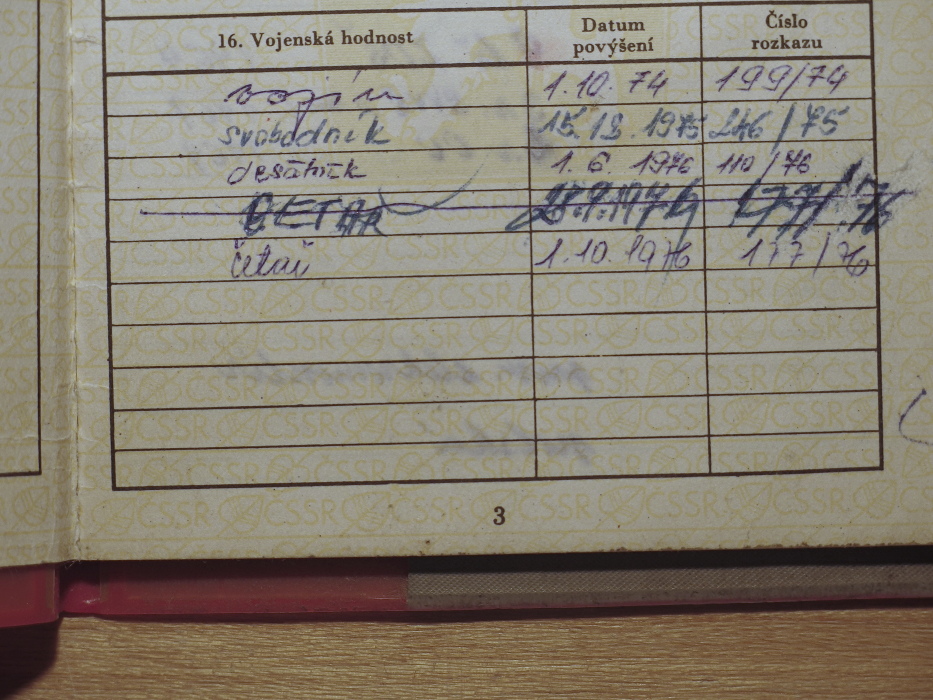 16. Vojenská hodnost Datum povýšení Číslo rozkazu
vojín 1.10.74 199/74
svobodník 15.12.1975 246/75
desátník 1. 6. 1976 110/76
ČETAŘ 177/76
četař 1.10.1976 177/76
3
ČSSR